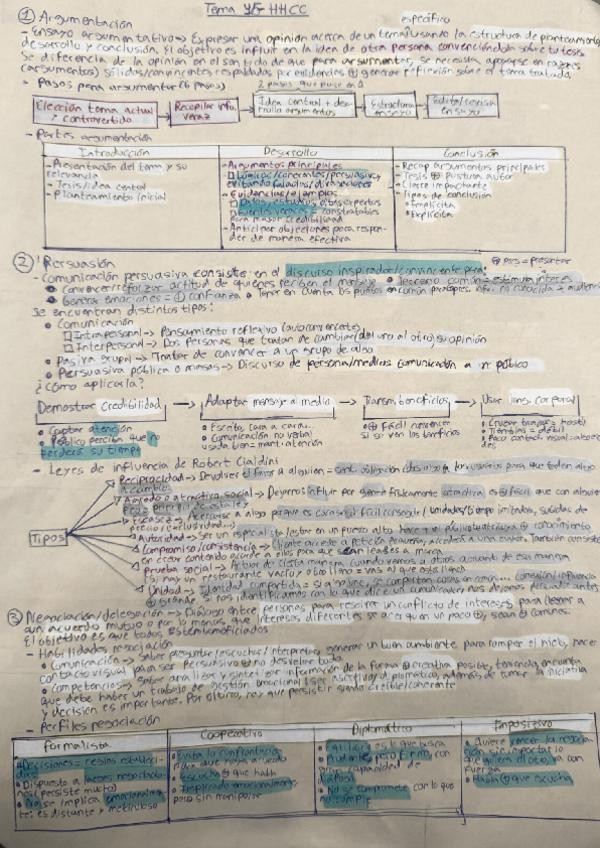 Tema 4/5 HHCC
① Argumentación
- Ensayo argumentativo → Expresar una opinión acerca de un tema específico usando la estructura de planteamiento,
desarrollo y conclusión. El objetivo es influir en la idea de otra persona convenciéndola sobre tu tesis
Se diferencia de la opinión en el sentido de que para argumentar, se necesita apoyarse en razones
(argumentos) sólidas/convincentes respaldadas por evidencias ⊕ generar reflexión sobre el tema tratado.
- Pasos para argumentar (6 pasos)
2 pasos que puse en 1
Elección tema actual y controvertido → Recopilar info. veraz → Idea central + desarrolla argumentos → Estructurar ensayo → ensayo
- Partes argumentación
Introducción
- Presentación del tema y su
relevancia
- Tesis/idea central
- Planteamiento inicial
Desarrollo
- Argumentos principales
Lógicos/coherentes/persuasivos
evitando falacias
- Evidencias/ejemplos
Datos/estudios/citas expertos
Fuentes veraces constatables
para mayor credibilidad
- Anticipar objeciones para responder
de manera efectiva
Conclusión
- Recap argumentos principales
- Tesis ⊕ postura autor
- Cierre impactante
- Tipos de conclusión
Implícita
Explícita
② Persuasión
- Comunicación persuasiva consiste: en el discurso inspirador/convincente para:
Convencer/reforzar actitud de quienes reciben el mensaje
Terreno común = estimula interés
Generar emociones = ⊕ confianza
Tener en cuenta los puntos en común
Se encuentran distintos tipos:
Comunicación
Intrapersonal → Pensamiento reflexivo (autoconvencerte)
Interpersonal → Dos personas que tratan de cambiar (del uno al otro) su opinión
Pasiva grupal → Tratar de convencer a un grupo de algo
Persuasiva pública o masas → Discurso de persona/medios comunicación a un público
¿Cómo aplicarla?
Demostrar credibilidad → Adaptar mensaje al medio → Transm. beneficios → Usar leng. corporal
Captar atención
Público perciba que no
perderá su tiempo
Escrito, cara a cara...
Comunicación no verbal
usada bien = mant. atención
⊕ Fácil convencer
si so ven los beneficios
Cruzar brazos = hostil
Temblor = débil
Poco contact. visual =
- Leyes de influencia de Robert Cialdini
Tipos
Reciprocidad → Devolver el favor a alguien =
a cambio
Agrado o atractivo social → Dejarnos influir por gente físicamente atractiva es ⊕ fácil que con alguien
Escasez → Acercarse a algo porque es escaso/difícil conseguir/Unidades/tiempo limitados, subidas de
precio/exclusividad...)
Autoridad → Ser un especialista/estar en un puesto alto hace ⊕ conocimiento
Compromiso/consistencia → Cliente accede a petición pequeña, accederá a una mayor. También consiste
en crear contenido acorde a ellos para que sean leales a marca
Prueba social → Actuar de cierta manera cuando vemos a otros actuando de esa manera
(si hay un restaurante vacío y otro lleno = vas al que está lleno)
Unidad → Identidad compartida = si alguien se comparten cosas en común... conexión/influencia
⊕ grande nos identificamos con lo que dice un comunicador, nos dejamos
③ Negociación/delegación → Diálogo entre personas para resolver un conflicto de intereses para llegar a
un acuerdo mutuo o por lo menos que intereses diferentes se acerquen un poco
El objetivo es que todos estén beneficiados
- Habilidades negociación
Comunicación → Saber preguntar/escuchar/interpretar generar un buen ambiente para romper el hielo, hacer
contacto visual para ser persuasivo ⊕ no desvelar todo.
Competencia → Saber analizar y sintetizar información de la forma ⊕ creativa posible, teniendo en cuenta
que debe haber un trabajo de gestión emocional (ser asertivo/diplomático, además de tomar la iniciativa
y decisión es importante. Por último, hay que persistir siendo creíble/coherente
- Perfiles negociación
Formalista
Decisiones = reglas establecidas
Dispuesto a
(persiste mucho)
No se implica emocionalmente:
es distante y meticuloso
Cooperativo
Evita la confrontación
para que haya acuerdo
Escucha ⊕ que habla
Implicado emocionalmente
pero sin manipular
Diplomático
Equilibrio es lo que busca
Prudente pero firme, con
gran capacidad de
No se compromete con lo que
no cumple
Impositivo
Quiere vencer la negociación
sin importar lo que
quiera el otro, va con
fuerza
Habla ⊕ que escucha